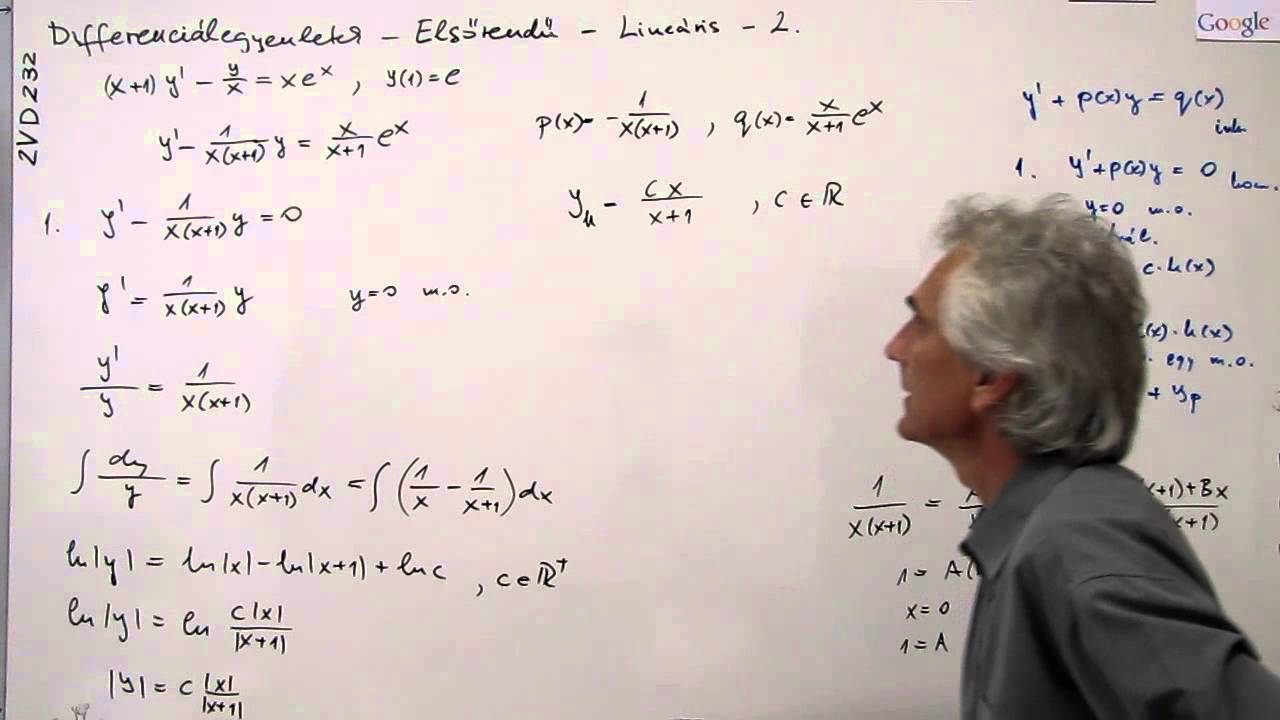 Differenciálegyenletek – Elsőrendű – Lineáris – 2.
Google
2VD232
(x+1) y' - y/x = x e^x , y(1) = e
y' - 1/(x(x+1)) y = x/(x+1) e^x
p(x) = - 1/(x(x+1)) , q(x) = x/(x+1) e^x
1. y' - 1/(x(x+1)) y = 0
y_h = cx/(x+1) , c ∈ ℝ
y' = 1/(x(x+1)) y y=0 m.o.
y'/y = 1/(x(x+1))
∫ dy/y = ∫ 1/(x(x+1)) dx = ∫ (1/x - 1/(x+1)) dx
ln|y| = ln|x| - ln|x+1| + ln c , c ∈ ℝ⁺
ln|y| = ln c|x|/|x+1|
|y| = c |x|/|x+1|
y' + p(x)y = q(x)
inh
1. y' + p(x)y = 0 hom.
y=0 m.o.
c·h(x)
(x)·h(x)
egy m.o.
+ y_p
1/(x(x+1)) =
(x+1)+Bx
x+1)
1 = A(
x=0
1 = A